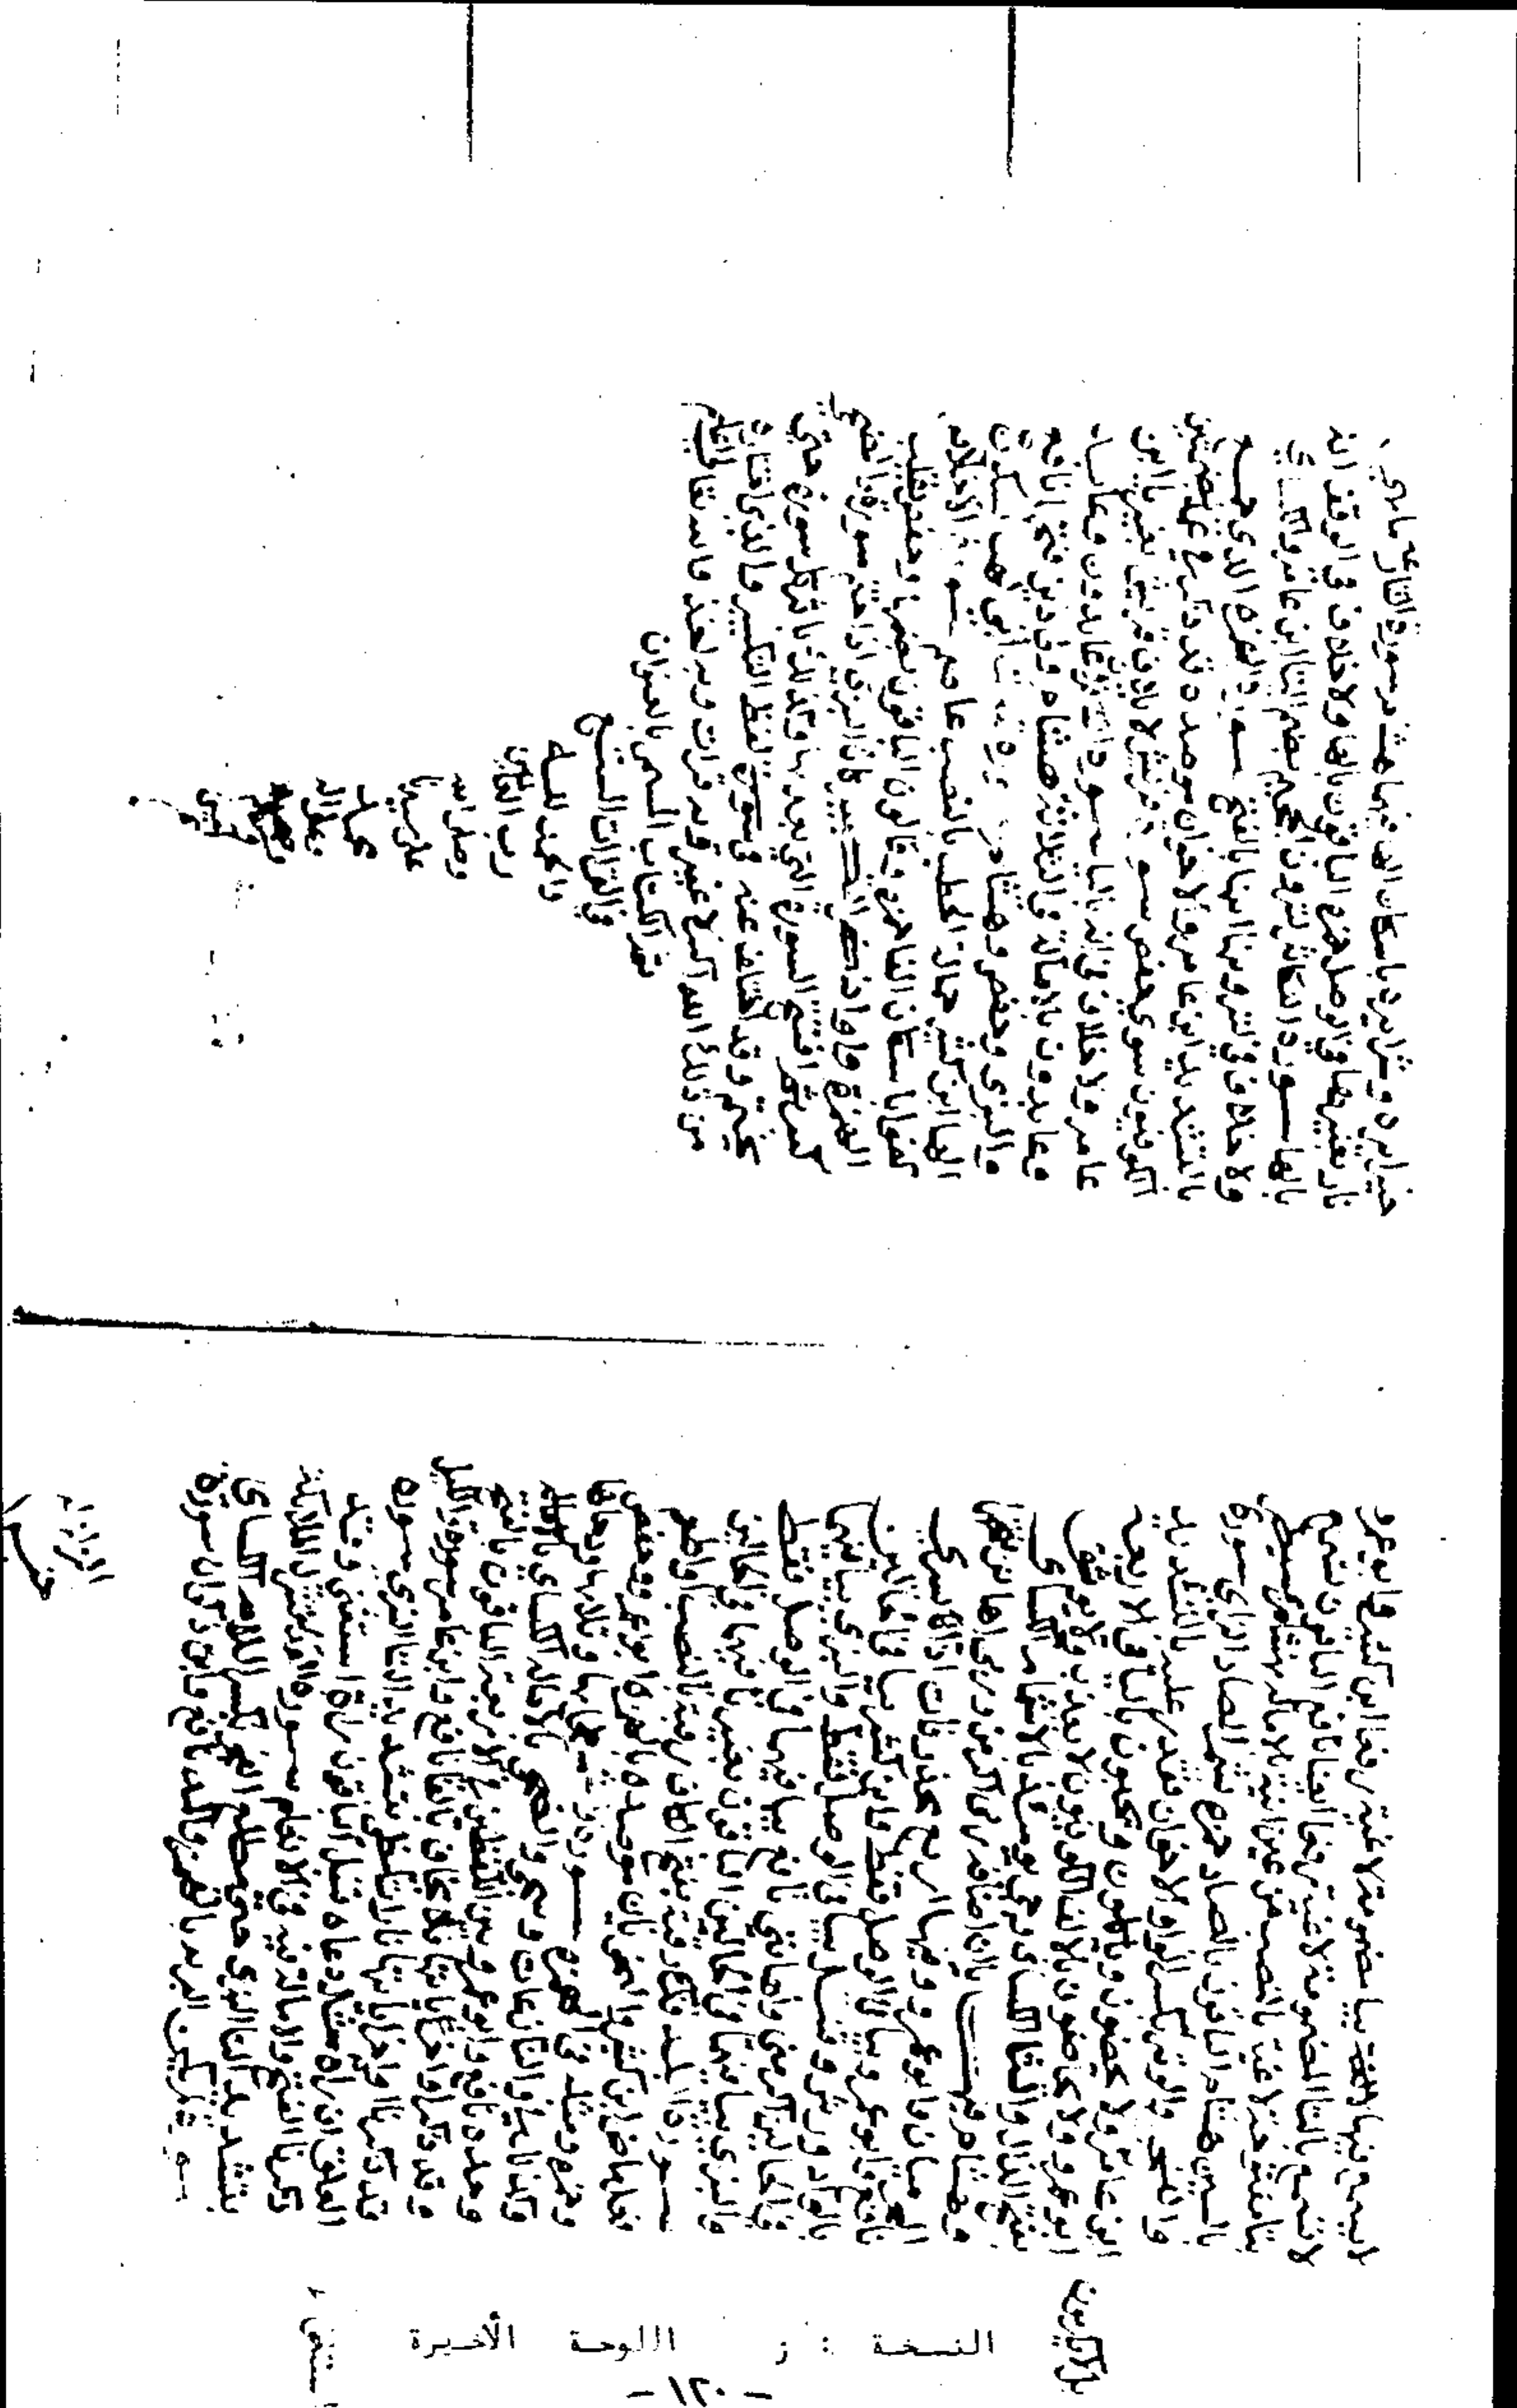 لا يسمع فيها لاغية بياء مضمومة لاغية رفعا ابن كثير وابو عمرو
لا تسمع بالتاء المضمومة لاغية رفعا ايضا نافع الباقون تسمع
بتاء مفتوحة لاغية بالنصب من عين آنية بالامالة هشام
بالسين هشام الباقون بالصاد حمزة يشم الصاد الزاي سورة
والفجر والوتر بكسر الواو الاخوان فقدر عليه بالتشديد
ابن عامر ولا يحضون وياكلون ويحبون بالياء في الاربعة
ابو عمرو ولا تحاضون بالالف الكوفيون لا يعذب ولا يوثق
بفتح الذال والثاء الكسائي وجيء يومئذ بالاشمام الكسائي
وهشام وفيها ياان اضافة ربي اكرمن وربي اهانن
الحرميان وابو عمرو وفيها اربع محذوفات اذا يسري
نافع وابو عمرو بياء في الوصل فقط وابن كثير بياء في الحالين
بالواد ورش وقنبل بياء في الوصل فقط والبزي بياء فيهما
في الحالين اكرمني واهانني نافع بياء فيهما في الوصل فقط
والبزي بياء فيهما في الحالين الباقون بغير ياء فيهما في الحالين
سورة البلد فك رقبة بفتح الكاف رقبة بالنصب او اطعم
فعل ماض ابن كثير والنحويان موصدة بالهمزة ابو عمرو وحفص
وحمزة ومثله في الهمزة سورة ضحاها وتلاها وطحاها
وكذلك والنازعات وسجى والضحى بالامالة الكسائي
وحده نافع وابو عمرو بين اللفظين الباقون بالفتح
وقد ذكر فلا يخاف بالفاء نافع وابن عامر سورة الليل
قد ذكر نارا تلظى بتشديد التاء البزي سورة
العلق ان راه مثل رعاه قنبل الباقون راه استغنى وقد
ذكرنا الفتح والامالة فيه في الانعام سورة القدر
بتشديد التاء البزي حتى مطلع الفجر بكسر اللام الكسائي
سورة لم يكن البريئة بالهمز والمد نافع وابن ذكوان سورة
خيرا يره وشرا يره باسكان الهاء فيهما هشام سورة القارعة ما هي
نار بغير هاء في الوصل حمزة الباقون بالهاء ولا خلاف في الوقف انه
بالهاء سورة التكاثر لترون الجحيم بضم التاء ابن عامر والكسائي
ولا خلاف في لترونها انها بالفتح سورة الهمزة الذي جمع
بالتشديد ابن عامر والاخوان موصدة قد ذكر في عمد بضمتين
الكوفيون سوى حفص سورة قريش لالاف قريش بغير ياء ابن
عامر ولا خلاف في انه بالياء سورة الكافرون عابدون وعابد
وعابدون بالامالة في الثلاثة هشام ولي دين فتحها نافع
والبزي وحفص وهشام سورة تبت ابي لهب بسكون
الهاء ابن كثير حمالة الحطب بالنصب عاصم سورة الاخلاص
كفوا باسكان الفاء حمزة وقالون الباقون بضمها وحفص بقلب
الهمزة واوا ذكر التكبير كان البزي اذا ختم سورة والضحى
كبر ثم افتتح السورة التي بعدها وكذلك ياتي كل سورة حتى
يختم وقد اختلف عنه في صورة لفظ التكبير والذي اختاره
من ذلك الله اكبر لا غير وبه قرات وبه اخذ والله تعالى اعلم
تم الكتاب المسمى بالعنوان
في القراات السبع
والحمد لله
رب العالمين
وصلى الله
على سيدنا
محمد
النسخة : ز اللوحة الأخيرة
- ١٢٠ -